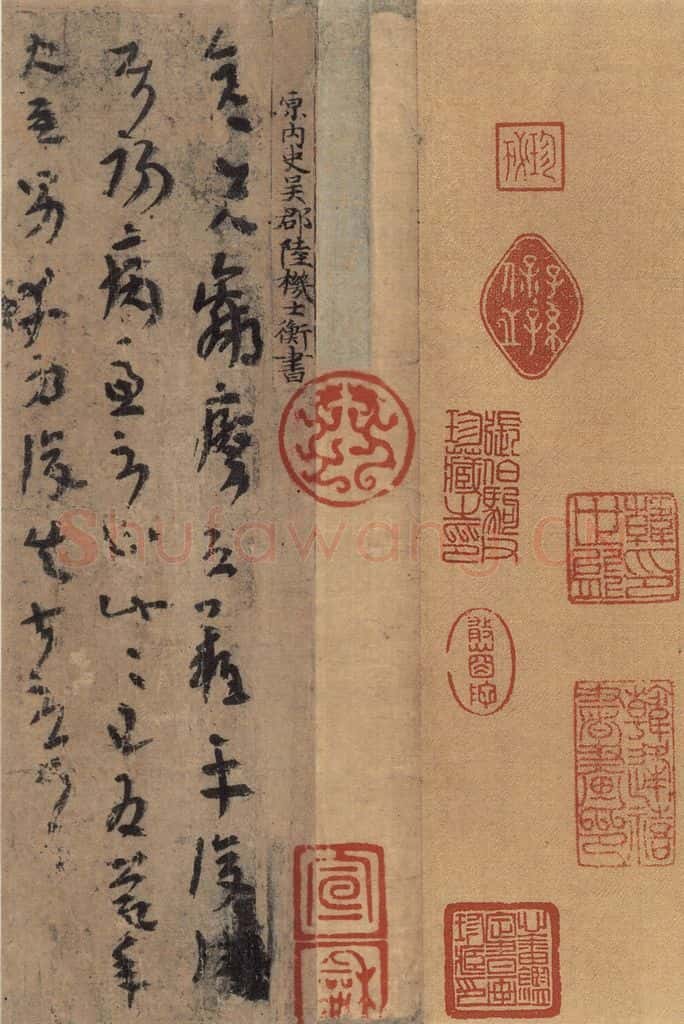 韓世能印
韓逢禧書畫印
張伯駒父珍藏之印
宣
和
晉內史吳郡陸機士衡書
彥先羸瘵恐難平復往
屬初病慮不止此〻已為慶承
使唯男幸為復失前憂耳
Shufawang.c